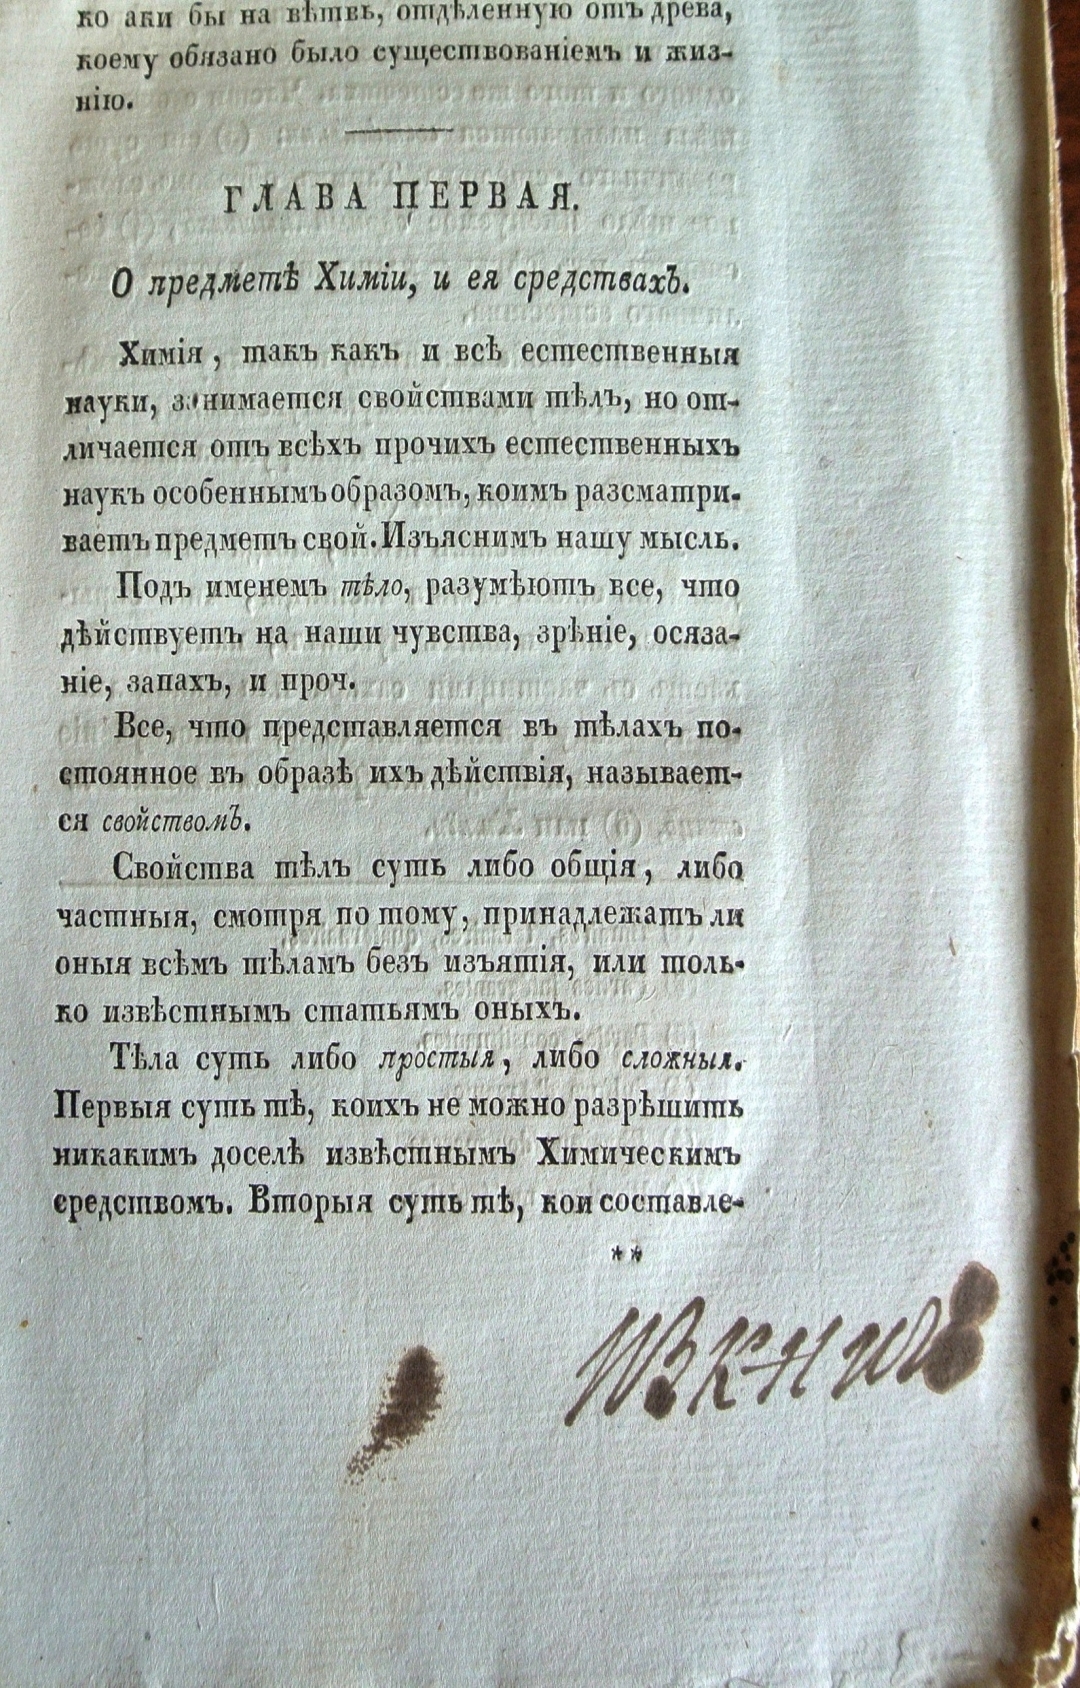 ко аки бы на вѣтвь, отдѣленную отъ древа,
коему обязано было существованіемъ и жиз-
нію.
ГЛАВА ПЕРВАЯ.
О предметѣ Химіи, и ея средствахъ.
Химія, такъ какъ и всѣ естественныя
науки, занимается свойствами тѣлъ, но от-
личается отъ всѣхъ прочихъ естественныхъ
наукъ особеннымъ образомъ, коимъ разсматри-
ваетъ предметъ свой. Изъяснимъ нашу мысль.
Подъ именемъ тѣло, разумѣютъ все, что
дѣйствуетъ на наши чувства, зрѣніе, осяза-
ніе, запахъ, и проч.
Все, что представляется въ тѣлахъ по-
стоянное въ образѣ ихъ дѣйствія, называет-
ся свойствомъ.
Свойства тѣлъ суть либо общія, либо
частныя, смотря по тому, принадлежатъ ли
оныя всѣмъ тѣламъ безъ изъятія, или толь-
ко извѣстнымъ статьямъ оныхъ.
Тѣла суть либо простыя, либо сложныя.
Первыя суть тѣ, коихъ не можно разрѣшить
никакимъ доселѣ извѣстнымъ Химическимъ
средствомъ. Вторыя суть тѣ, кои составле-
**